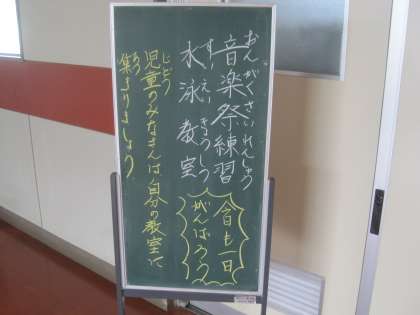 おんがくさいれんしゅう
音楽祭練習
すいえいきょうしつ
水泳教室
今日も一日
がんばろう
じどう
児童のみなさんは自分の教室に
あつ
集まりましょう